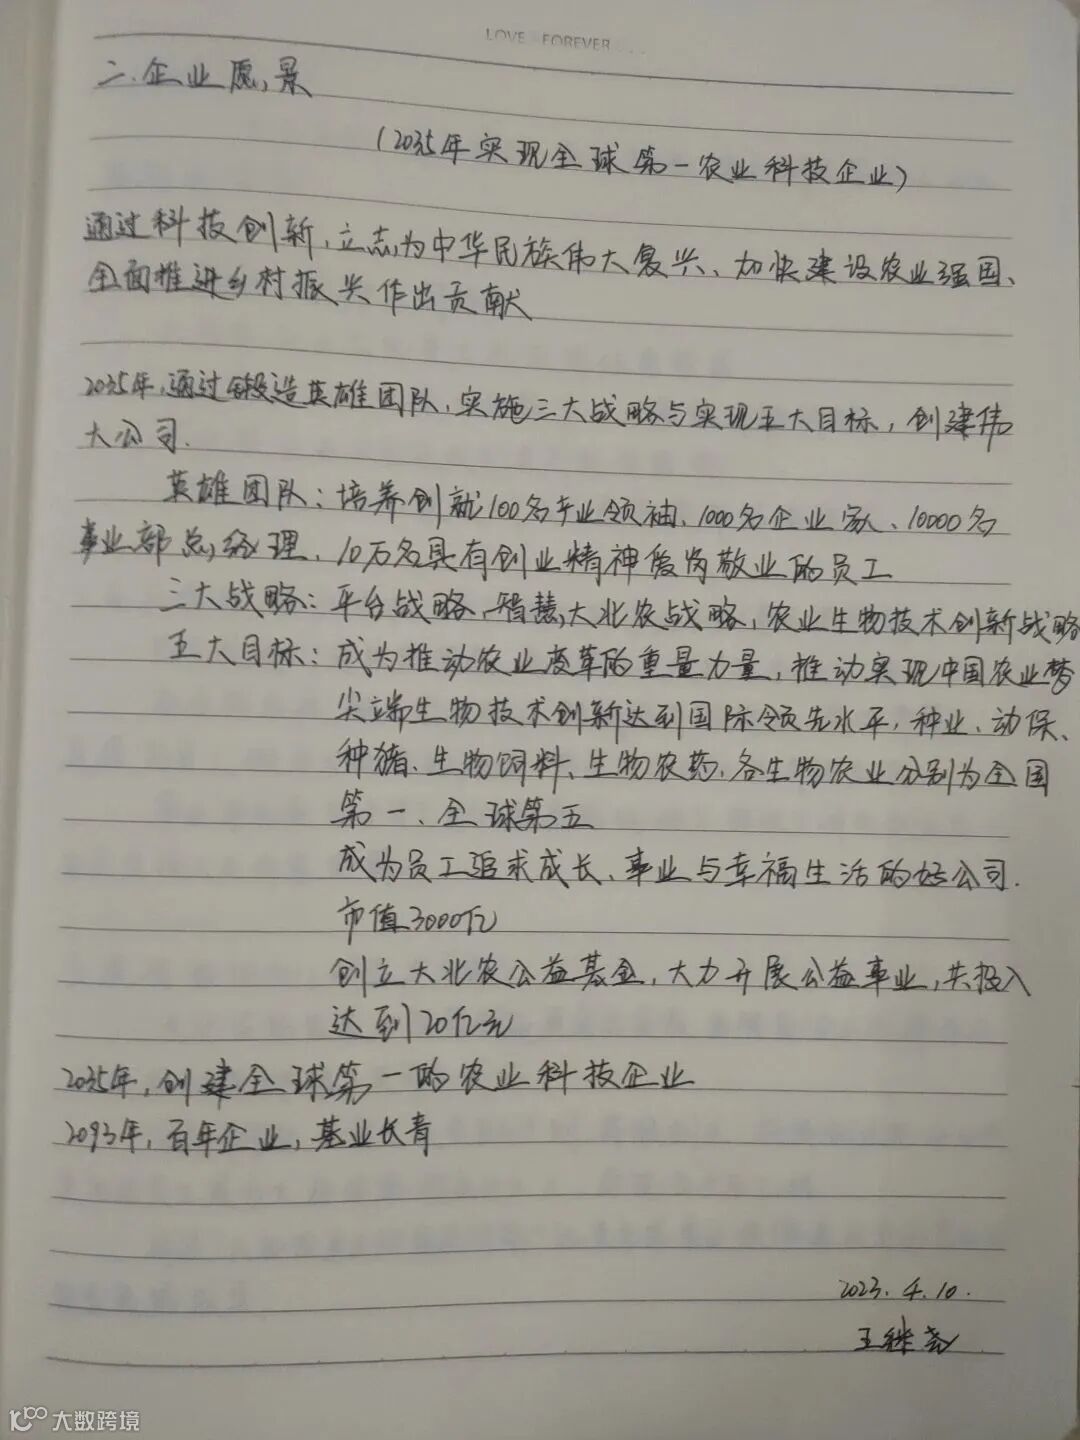 LOVE FOREVER
二、企业愿景
(2035年实现全球第一农业科技企业)
通过科技创新,立志为中华民族伟大复兴、加快建设农业强国、
全面推进乡村振兴作出贡献
2035年,通过锻造英雄团队,实施三大战略与实现五大目标,创建伟
大公司.
英雄团队:培养创就100名产业领袖、1000名企业家、10000名
事业部总经理、10万名具有创业精神爱岗敬业的员工
三大战略:平台战略、智慧大北农战略,农业生物技术创新战略
五大目标:成为推动农业变革的重量力量,推动实现中国农业梦
尖端生物技术创新达到国际领先水平,种业、动保、
种猪、生物饲料、生物农药,各生物农业分别为全国
第一、全球第五
成为员工追求成长、事业与幸福生活的好公司.
市值3000亿
创立大北农公益基金,大力开展公益事业,共投入
达到20亿元
2035年,创建全球第一的农业科技企业
2093年,百年企业,基业长青
2023.4.10.
王继尧
大数跨境